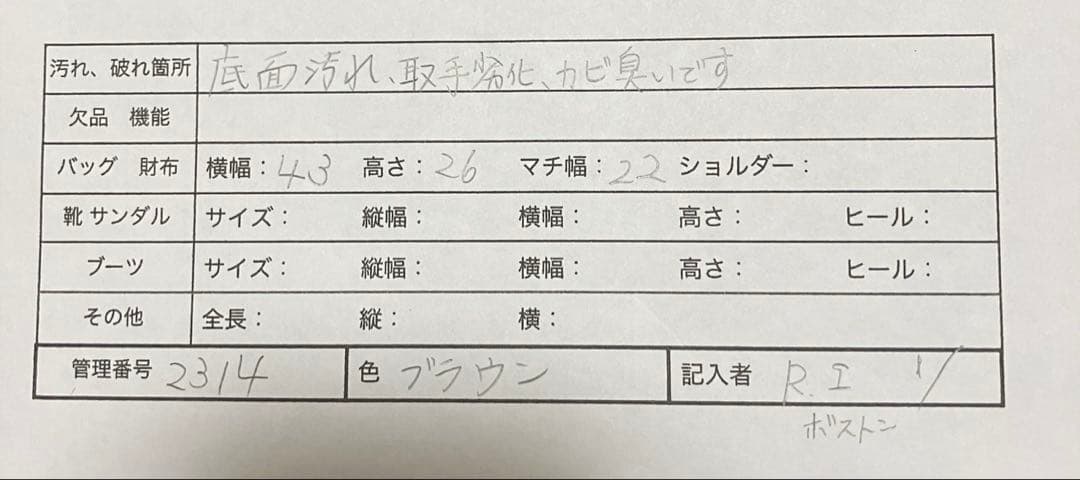 汚れ、破れ箇所 底面汚れ、取手劣化、カビ臭いです
欠品 機能
バッグ 財布 横幅：43 高さ：26 マチ幅：22 ショルダー：
靴 サンダル サイズ： 縦幅： 横幅： 高さ： ヒール：
ブーツ サイズ： 縦幅： 横幅： 高さ： ヒール：
その他 全長： 縦： 横：
管理番号 2314 色 ブラウン 記入者 R.I
ボストン